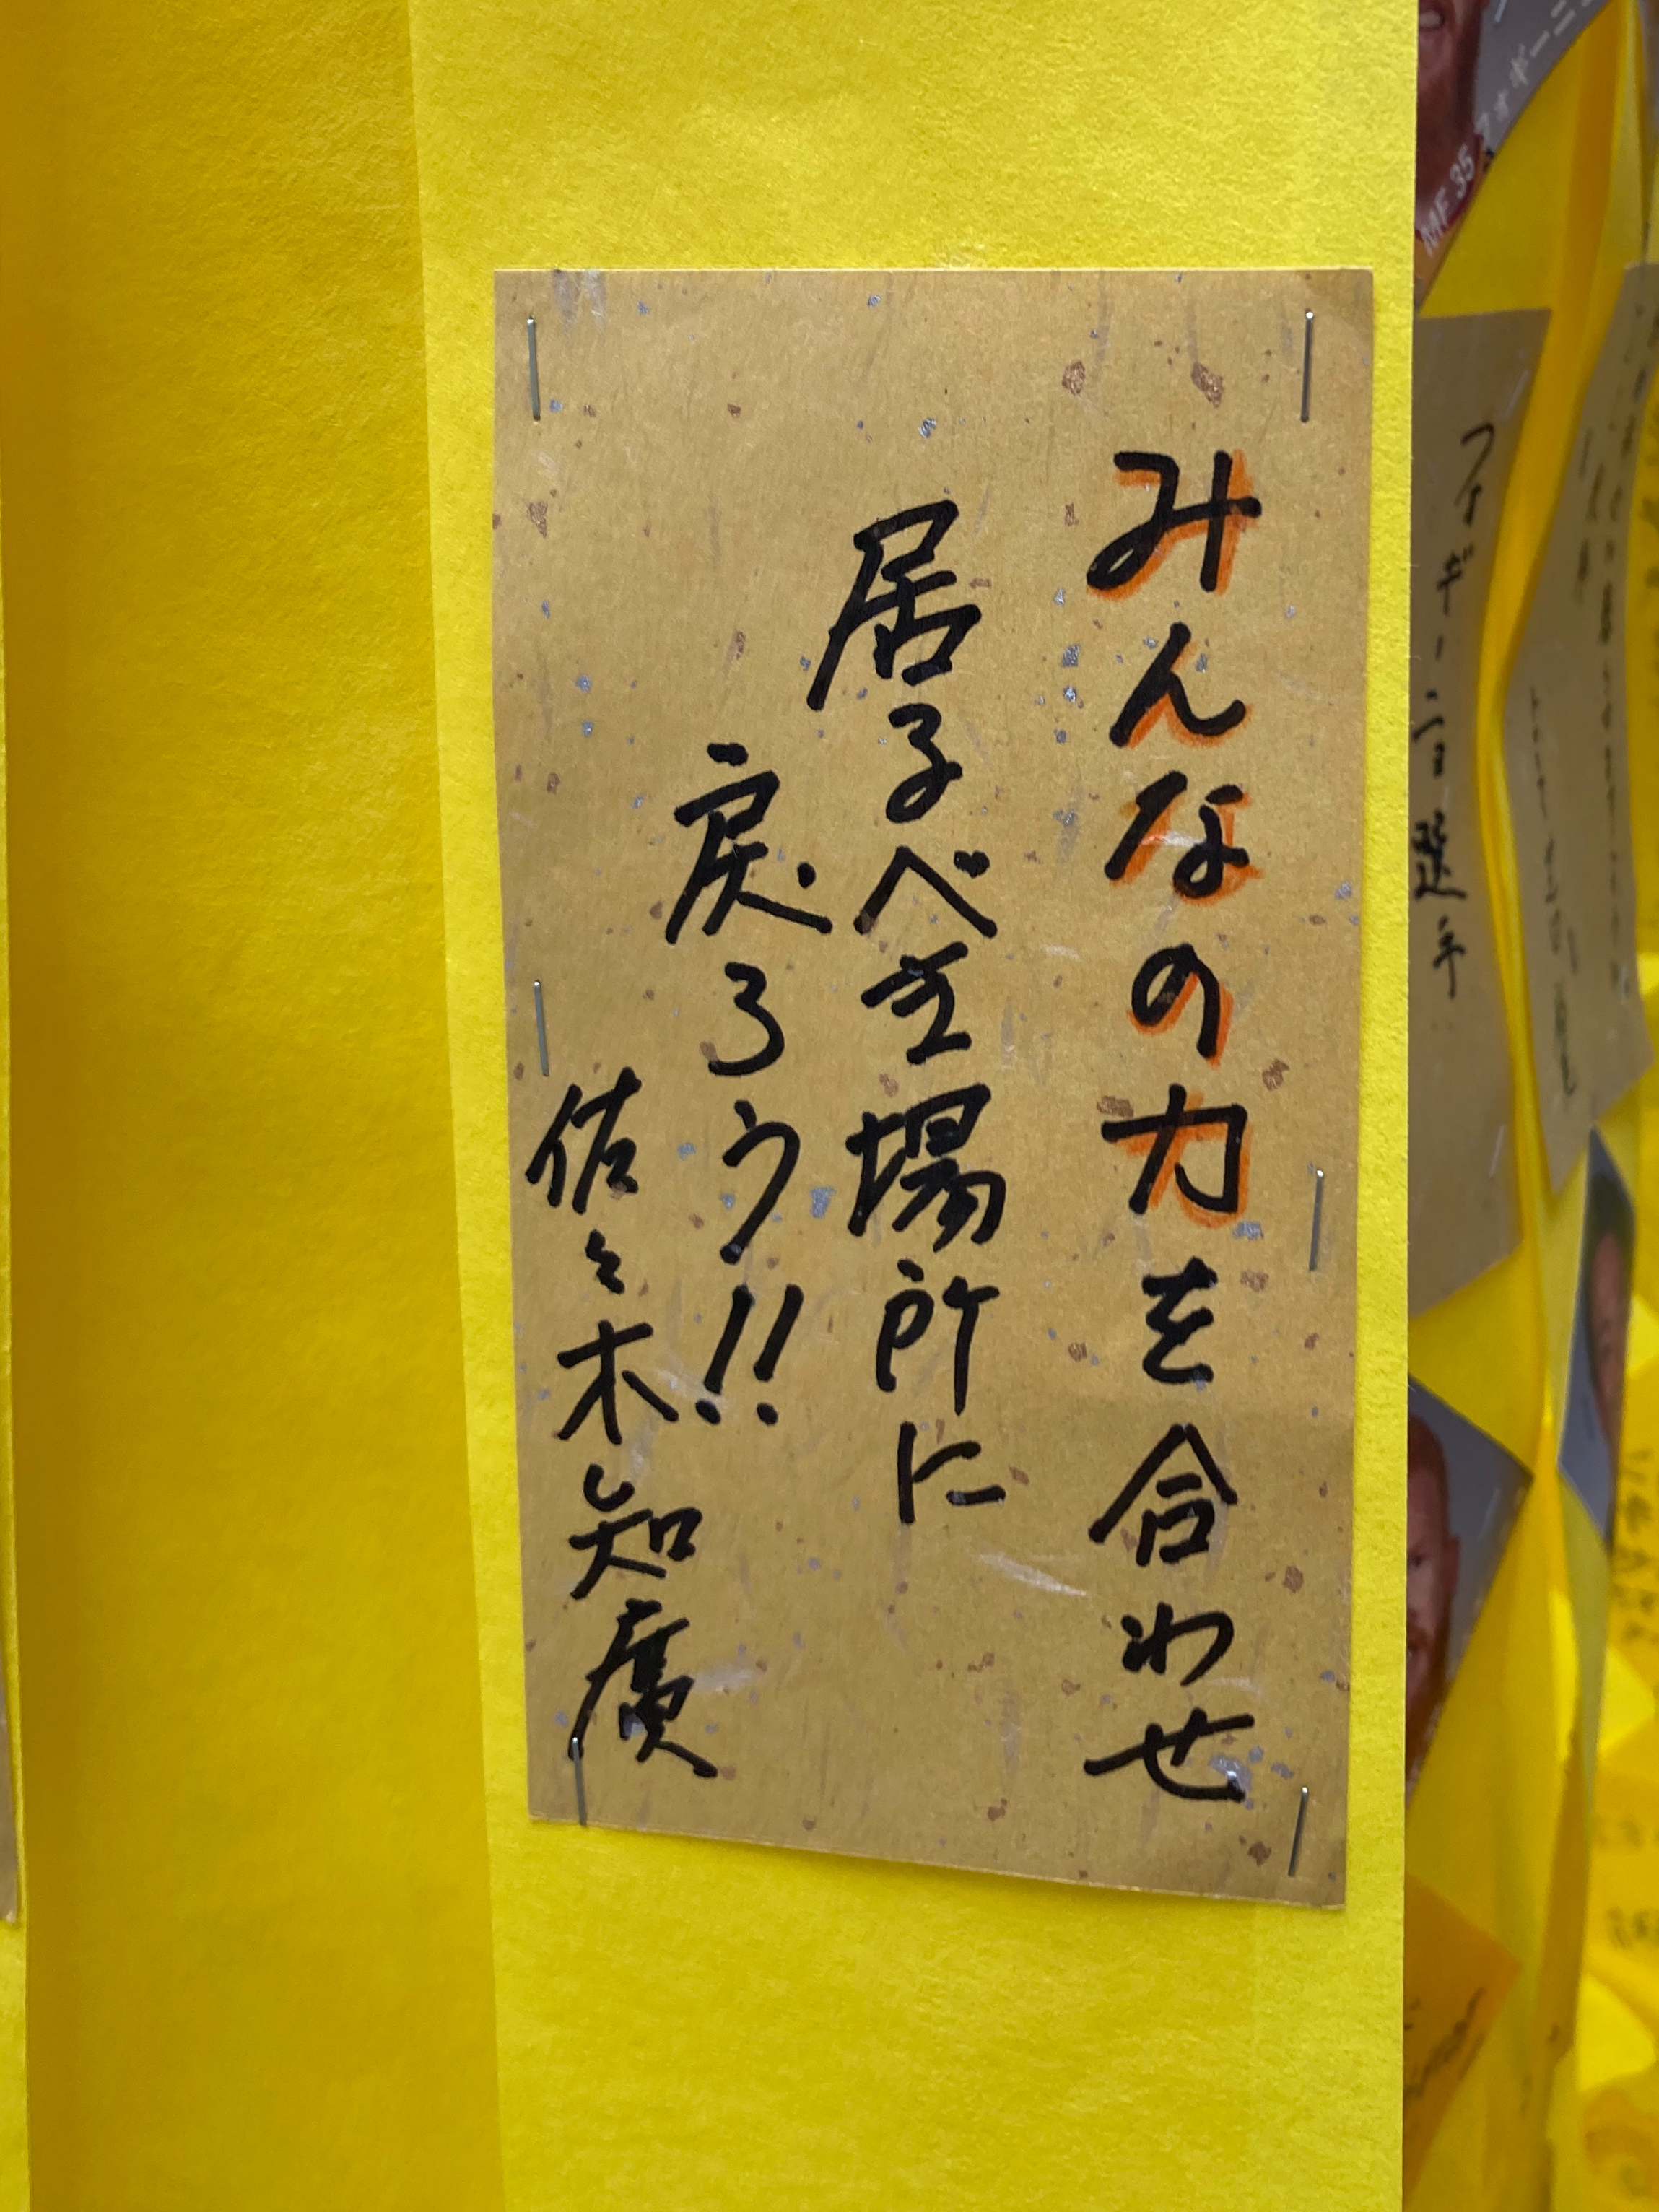 みんなの力を合わせ
居るべき場所に
戻ろう!!
佐々木知廣
MF 35
フォギーニョ選手